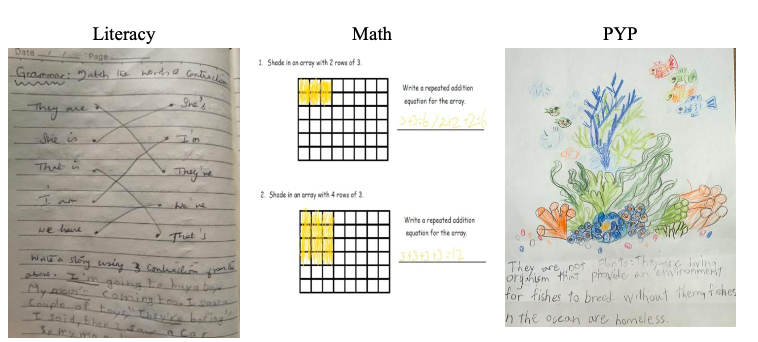 Literacy
Math
PYP
Date
Page
Grammar: Match the words & contraction
They are
She's
She is
I'm
That is
They're
I am
We've
we have
That's
Write a story using 3 contraction from the
above. I'm going to buy a toy.
My mom coming too. I saw a
Couple of toys "They're boring"
I said, then I saw a car
So my mo
1. Shade in an array with 2 rows of 3.
Write a repeated addition
equation for the array.
3+3=6/2+2+2=6
2. Shade in an array with 4 rows of 3.
Write a repeated addition
equation for the array.
3+3+3+3=12
They are not plants. They are living
organism that provide an environment
for fishes to breed without them, fishes
n the ocean are homeless.